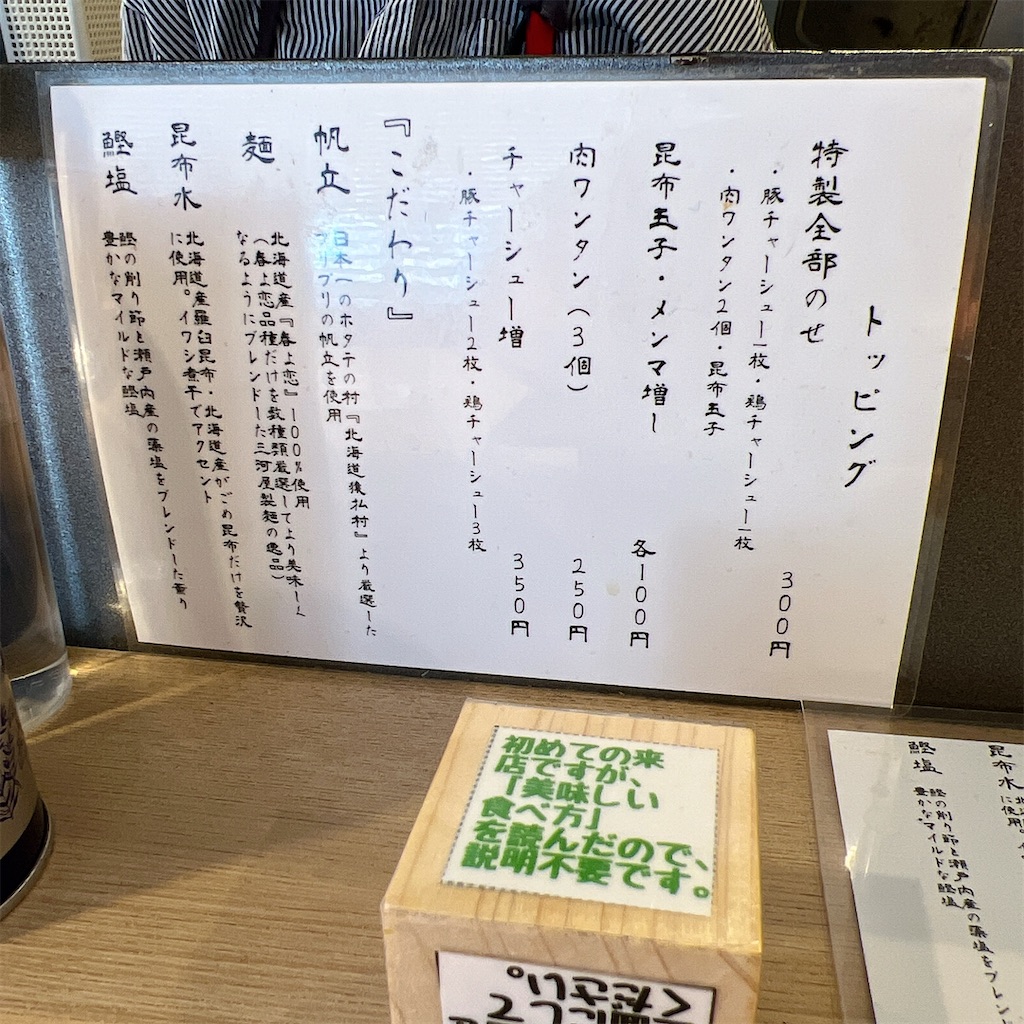 トッピング
特製全部のせ 300円
・豚チャーシュー1枚・鶏チャーシュー1枚
・肉ワンタン2個・昆布玉子
昆布玉子・メンマ増し 各100円
肉ワンタン(3個) 250円
チャーシュー増 350円
・豚チャーシュー2枚・鶏チャーシュー3枚
『こだわり』
帆立
日本一のホタテの村『北海道猿払村』より厳選した
プリプリの帆立を使用
麺
北海道産『春よ恋』100%使用
(春よ恋品種だけを数種類厳選してより美味しく
なるようにブレンドした三河屋製麺の逸品)
昆布水
北海道産羅臼昆布・北海道産がごめ昆布だけを贅沢
に使用。イワシ煮干でアクセント
鰹塩
鰹の削り節と瀬戸内産の藻塩をブレンドした薫り
豊かなマイルドな鰹塩
初めての来
店ですが、
「美味しい
食べ方」
を読んだので、
説明不要です。
ください。
昆布水
に使用。イ
鰹塩
鰹の削り節と瀬戸内産の藻塩をブレン
豊かなマイルドな鰹塩